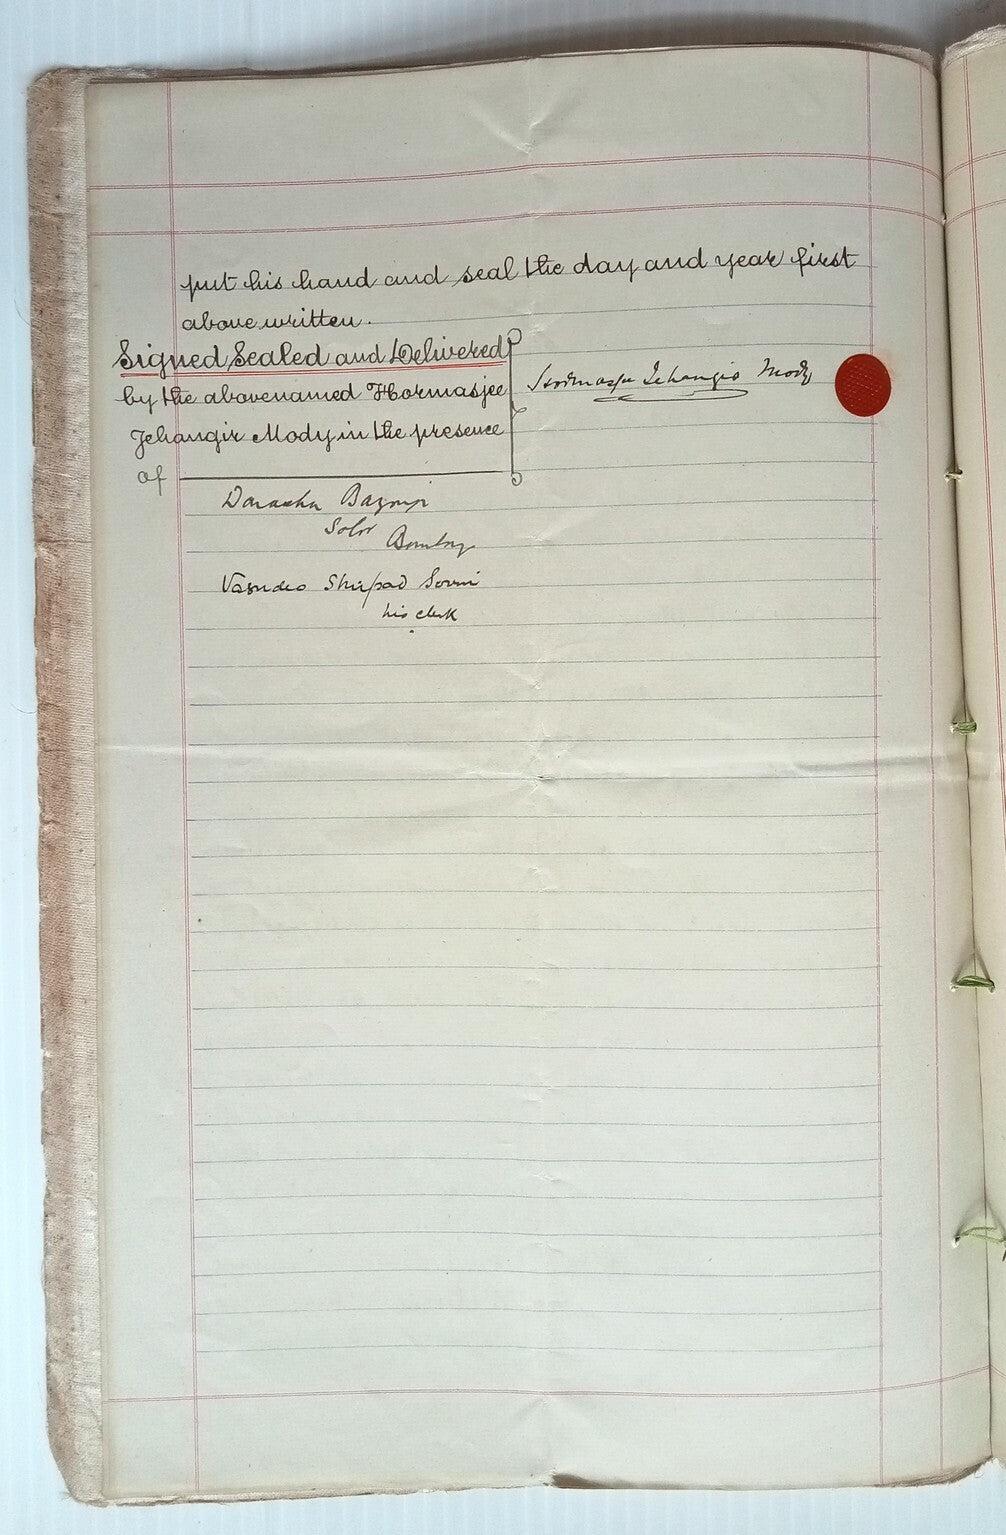 put his hand and seal the day and year first
above written.
Signed Sealed and Delivered
by the abovenamed Hormasjee
Jehangir Mody in the presence
of
Hormasjee Jehangir Mody
Solr
Bombay
Vasudeo Shripad
his clerk